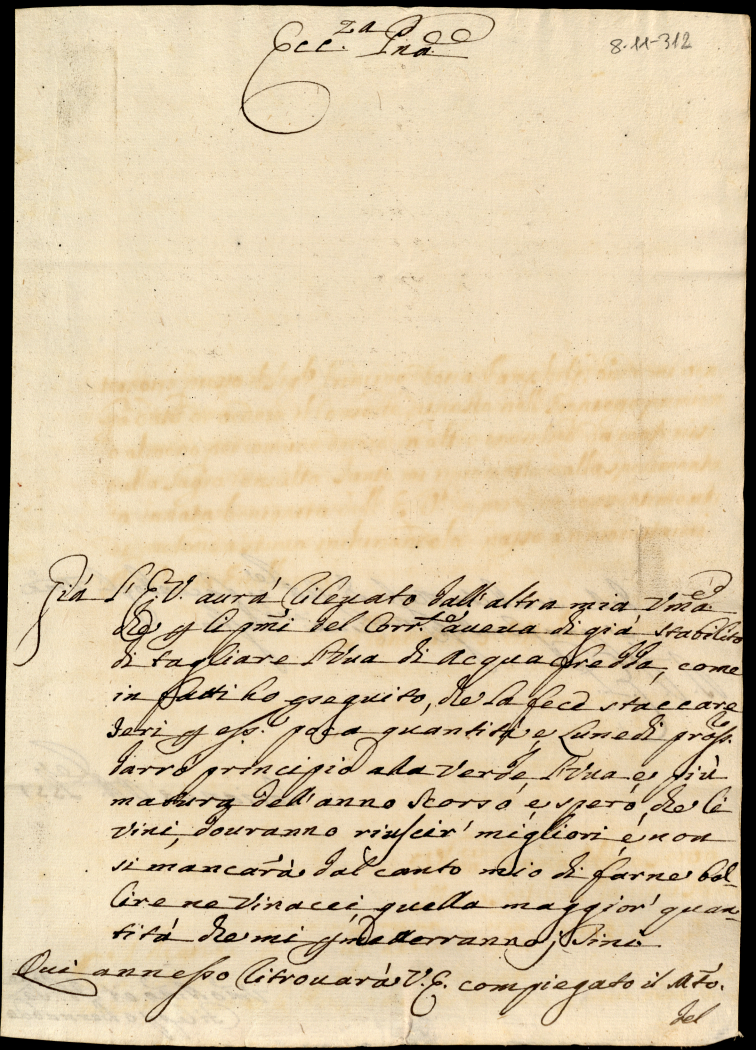 Ecc.za Pna
8-11-312
Già L'E.V. aurà rileuato dall'altra mia Uma
che p li pmi del Corr.te aueua di già stabilito
di tagliare l'Uua di Acqua fredda, come
in fatti hò eseguito, che la feci staccare
Ieri p ess. poca quantità, e Lunedì pross.
darrò principio alla Verde Uua e più
matura dell'anno scorso, e sperò, che li
vini, douranno riuscir' migliori, e non
si mancarà dal canto mio di farne bol-
lire ne Vinacci quella maggior' quan-
tità che mi pmetterranno, i Tini.
Qui annesso ritrouarà V.E. compiegato il Mto.
del